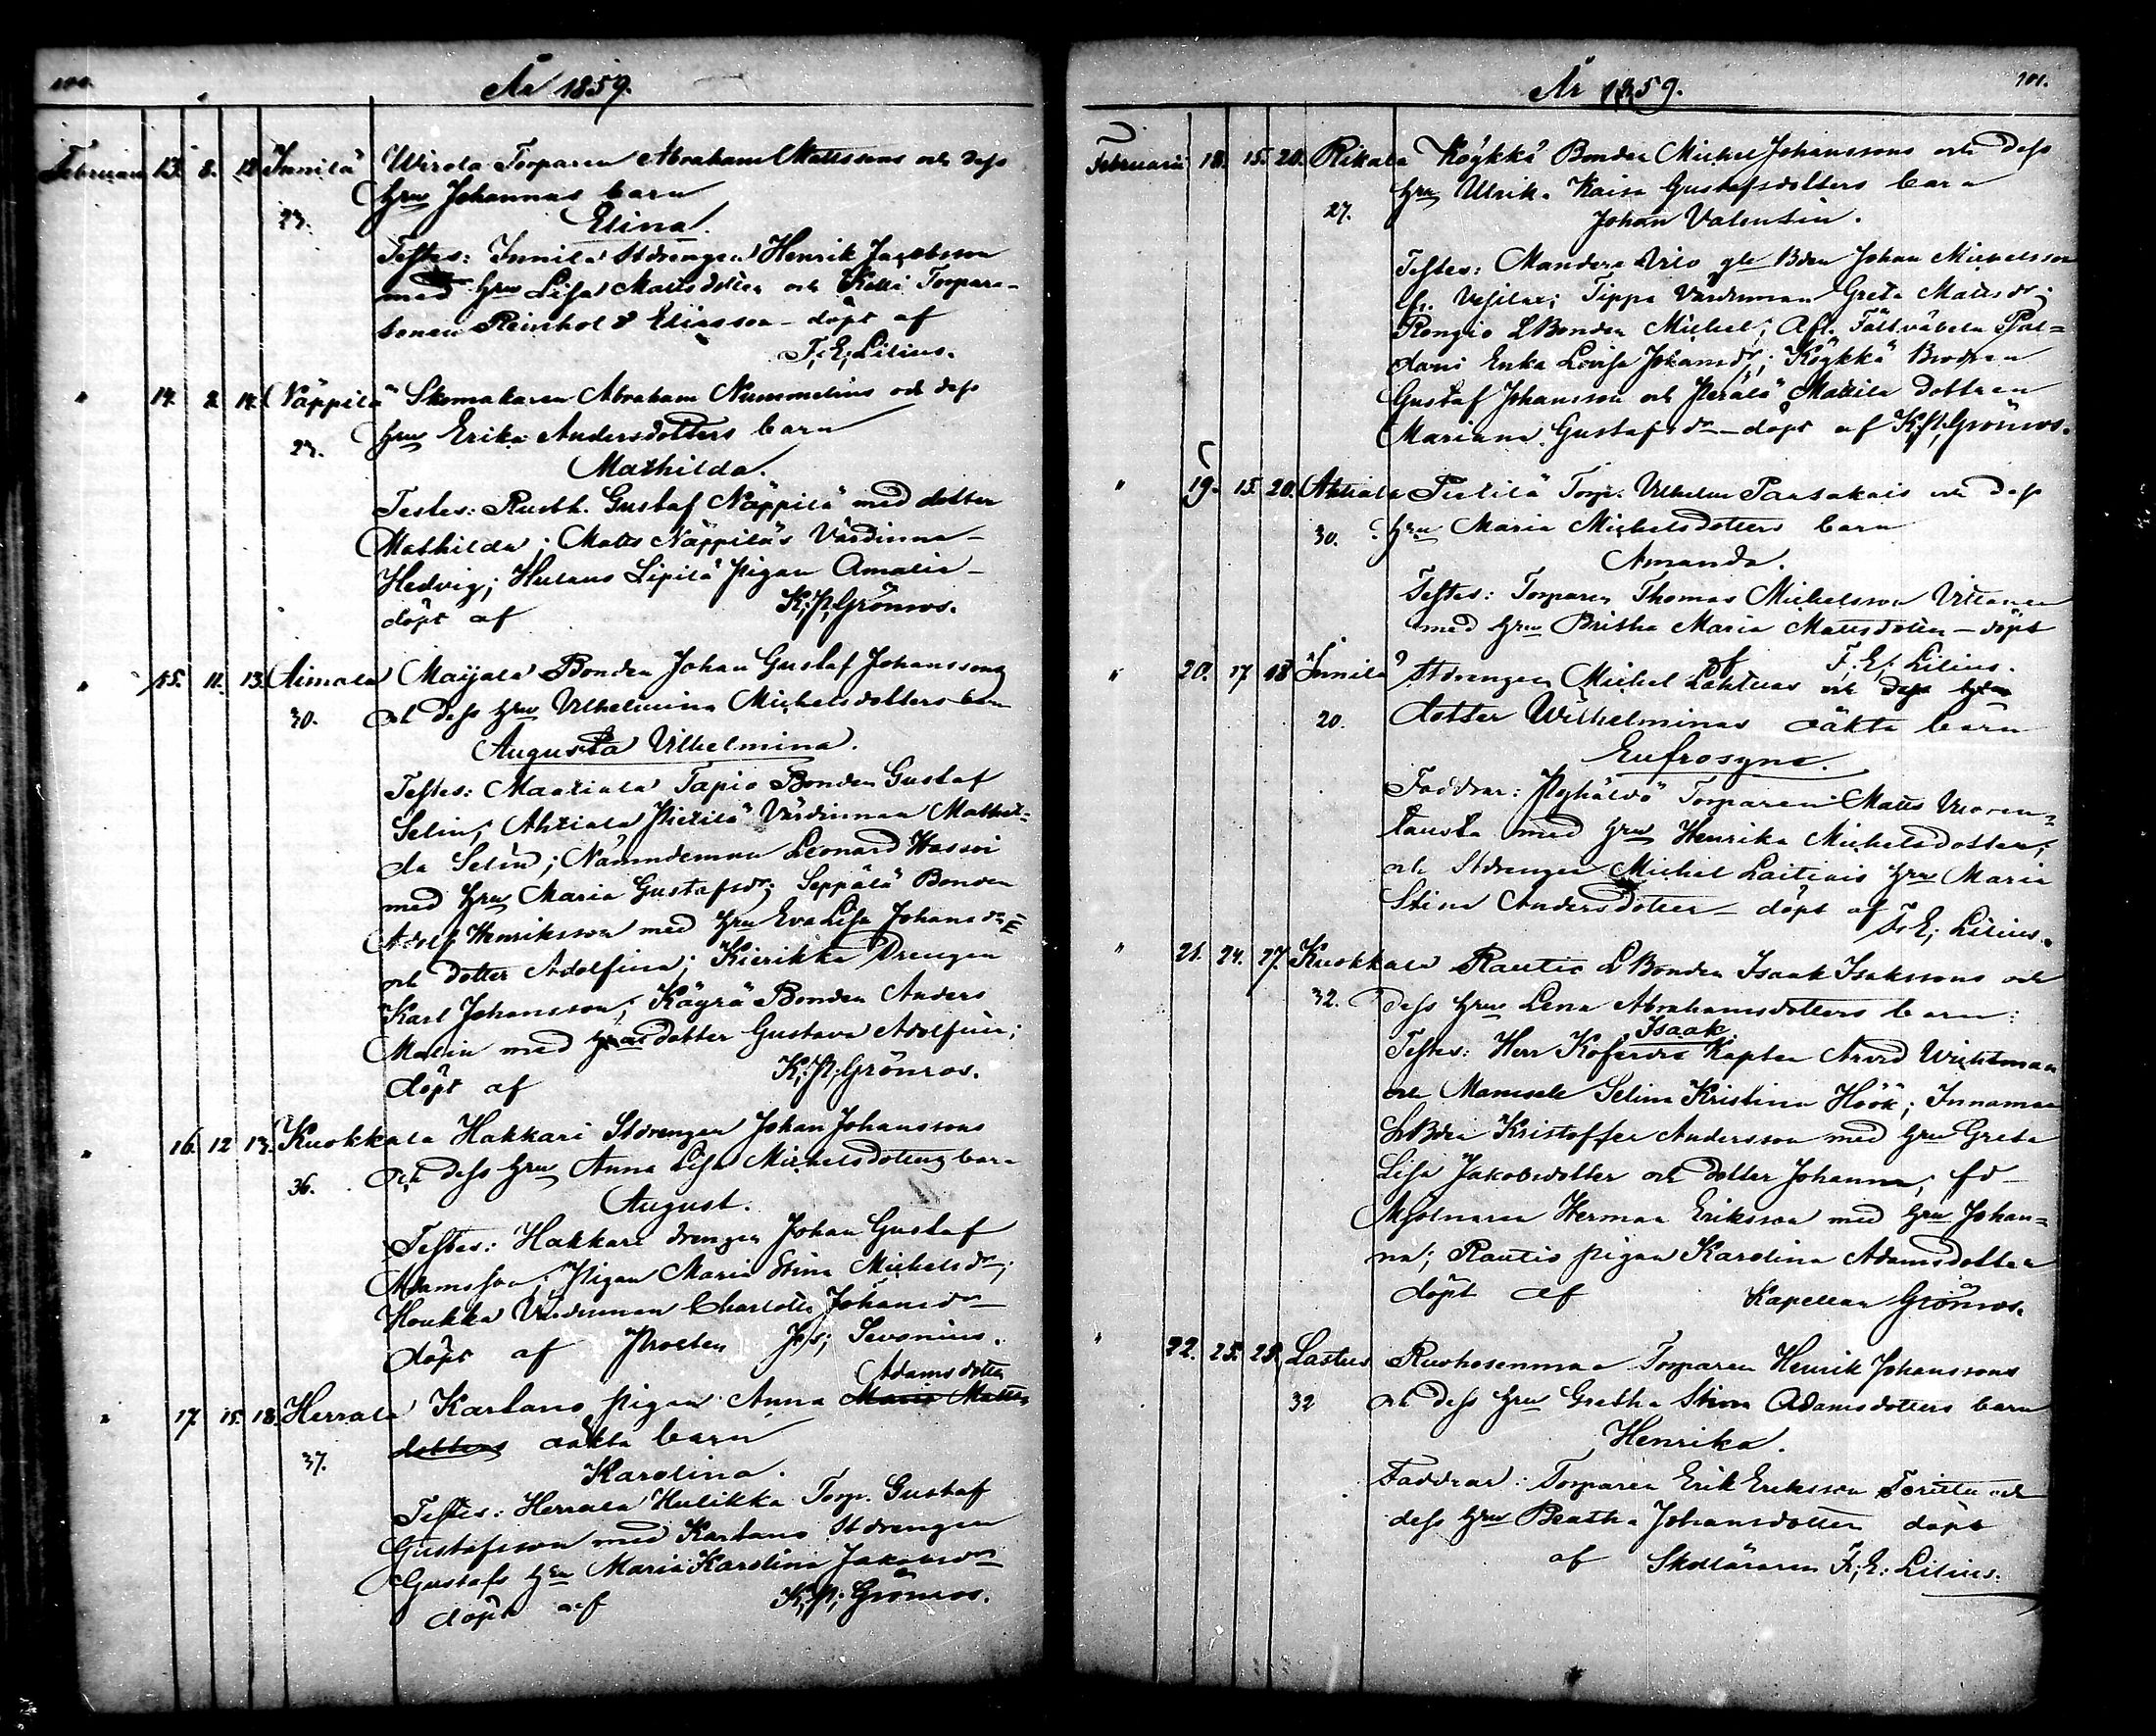 100.
År 1859.
Februari 13. 8. 12. Innilä Wirola Torparen Abraham Mattssons och dess
hru Johannas barn
23.
Elina.
Testes: Innilä Stdrengen Henrik Jacobsson
med hru Lisa Mattsdotter och Kolli Torpare-
sonen Reinhold Eliasson - döpt af
F. E. Lilius.
" 14. 2. 14. Näppilä Skomakaren Abraham Nummelins och dess
23. hru Erika Andersdotters barn
Mathilda.
Testes: Rusth. Gustaf Näppilä med dotter
Mathilda; Matts Näppiläs Värdinna
Hedvig; Hulaus Lipilä pigan Amalia -
döpt af K. P. Grönros.
" 15. 11. 13. Aimala Maijala Bonden Johan Gustaf Johanssons
30. och dess hru Vilhelmina Michelsdotters barn
Augusta Vilhelmina.
Testes: Maatiala Tapio Bonden Gustaf
Selin; Ahtiala Pietilä Värdinnan Mathil-
da Selin; Nämndeman Leonard Hassoi
med hru Maria Gustafsdr; Seppälä Bonden
Adolf Henriksson med hru Eva Lisa Johansdr
och dotter Adolfina; Kierikka Drengen
Karl Johansson; Käyrä Bonden Anders
Malin med dotter Gustava Adolfina;
döpt af K. P. Grönros.
" 16. 12 13. Kuokkala Hakkari Stdrengen Johan Johanssons
36. och dess hru Anna Lisa Michelsdotters barn
August.
Testes: Hakkari drengen Johan Gustaf
Adamsson; Pigan Maria Stina Michelsdr;
Houkka Värdinnan Charlotta Johansdr -
döpt af Prosten Jos; Sevonius.
Adamsdotters
" 17. 15. 18. Herrala Karlano pigan Anna Maria Matts
37. dotters oäkta barn
Karolina.
Testes: Herrala Hulikka Torp. Gustaf
Gustafsson med Karlano Stdrengen
Gustafs hru Maria Karolina Jakobsdr
döpt af K. P. Grönros.
101.
År 1859.
Februari 18. 15. 20. Rikala Köykkä Bonden Michel Johanssons och dess
27. hru Ulrika Kaisa Gustafsdotters barn
Johan Valentin.
Testes: Mandera Vilo gle Bden Johan Michelsson
fr. Vesilax; Tippa Värdinnan Greta Mattsdr;
Rongio LBonden Michel; Afl. Fältväbeln Pal-
dani Enka Lovisa Johansdr; Köykkä Brodren
Gustaf Johansson och Perälä Mattila dottren
Mariana Gustafsdr - döpt af K. P. Grönros.
" 19. 15. 20. Ahtiala Pietilä Torp. Vilhelm Paasokais och dess
30. hru Maria Michelsdotters barn
Amanda.
Testes: Torparen Thomas Michelsson Vittanen
med hru Britha Maria Mattsdotter - döpt
af F. E. Lilius.
" 20. 17 18 Innilä Stdrengen Michel Lahtuas och dess hru
20. dotter Wilhelminas oäkta barn
Eufrosyne.
Faddrar: Pyhäldö Torparen Matts Vuoren-
tausta med hru Henrika Michelsdotter;
och Stdrengen Michel Laitiais hru Maria
Stina Andersdotter - döpt af
F. E. Lilius.
" 21. 24. 27. Kuokkala Rautio LBonden Isaak Isakssons och
32. dess hru Lena Abrahamsdotters barn:
Isaak
Testes: Herr Koferdie Kapten Arvid Wichtman
och Mamsele Selina Kristina Höök; Innamaa
LBden Kristoffer Andersson med hru Greta
Lisa Jakobsdotter och dotter Johanna; fd
Mjölnaren Herman Eriksson med hru Johan-
na; Rautio pigan Karolina Adamsdotter
döpt af Kapellan Grönros.
" 22. 25. 28. Lastus Ruohosenmaa Torparen Henrik Johanssons
32 och dess hru Gretha Stina Adamsdotters barn
Henrika.
Faddrar: Torparen Erik Eriksson Toritta och
dess hru Beatha Johansdotter döpt
af Skolläraren F. E. Lilius.